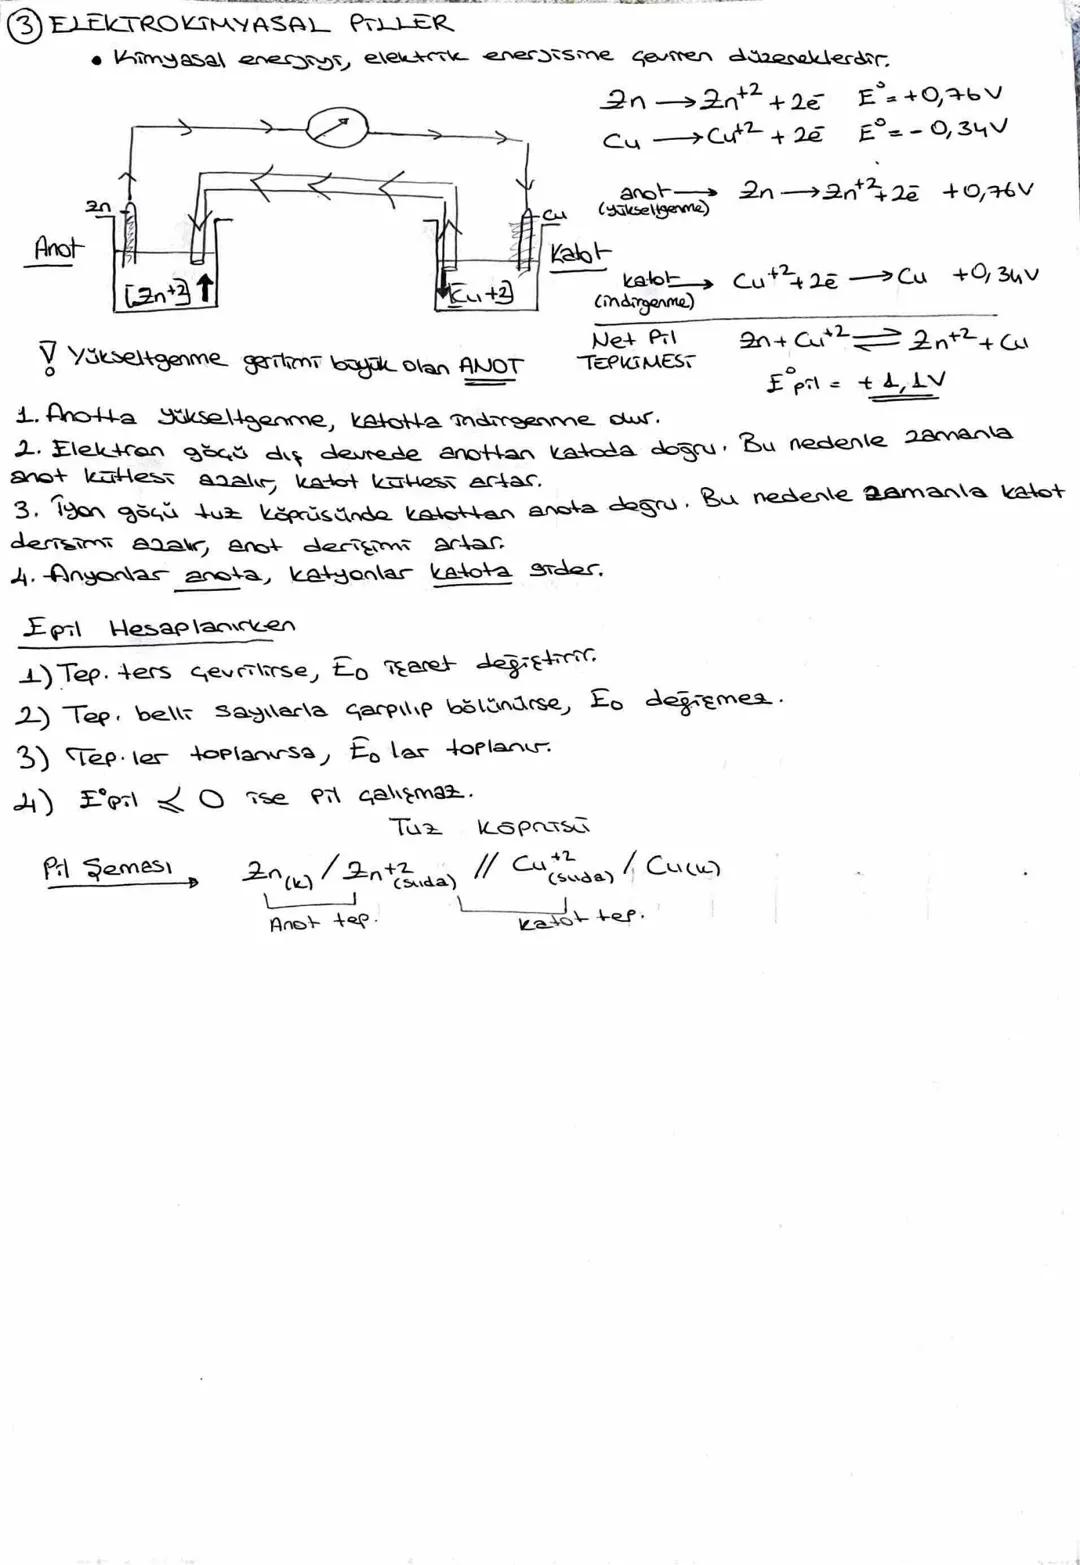 ③ ELEKTROKİMYASAL PİLLER
• Kimyasal enerjiyi, elektrik enerjisine çeviren düzeneklerdir.
Zn → Zn+2 + 2ē E° = +0,76V
Cu → Cu+2 + 2ē E° = -0,34V
anot → Zn → Zn+2 + 2ē +0,76V
(yükseltgenme)
Zn
Cu
Anot
Katot
[Zn+2] ↑
↓ [Cu+2]
katot → Cu+2 + 2ē → Cu +0,34V
(indirgenme)
Net Pil Zn + Cu+2 ⇌ Zn+2 + Cu
TEPKİMESİ
E°pil = +1,1V
! Yükseltgenme gerilimi büyük olan ANOT
1. Anotta yükseltgenme, katotta indirgenme olur.
2. Elektron göçü dış devrede anottan katoda doğru. Bu nedenle zamanla
anot kütlesi azalır, katot kütlesi artar.
3. İyon göçü tuz köprüsünde katottan anota doğru. Bu nedenle zamanla katot
derişimi azalır, anot derişimi artar.
4. Anyonlar anota, katyonlar katota gider.
Epil Hesaplanırken
1) Tep. ters çevrilirse, E0 işaret değiştirir.
2) Tep. belli sayılarla çarpılıp bölünürse, E0 değişmez.
3) Tep.ler toplanırsa, E0 lar toplanır.
4) E°pil ≤ 0 ise pil çalışmaz.
Tuz Köprüsü
Pil Şeması → Zn(k) / Zn+2(suda) // Cu+2(suda) / Cu(k)
Anot tep.
Katot tep.